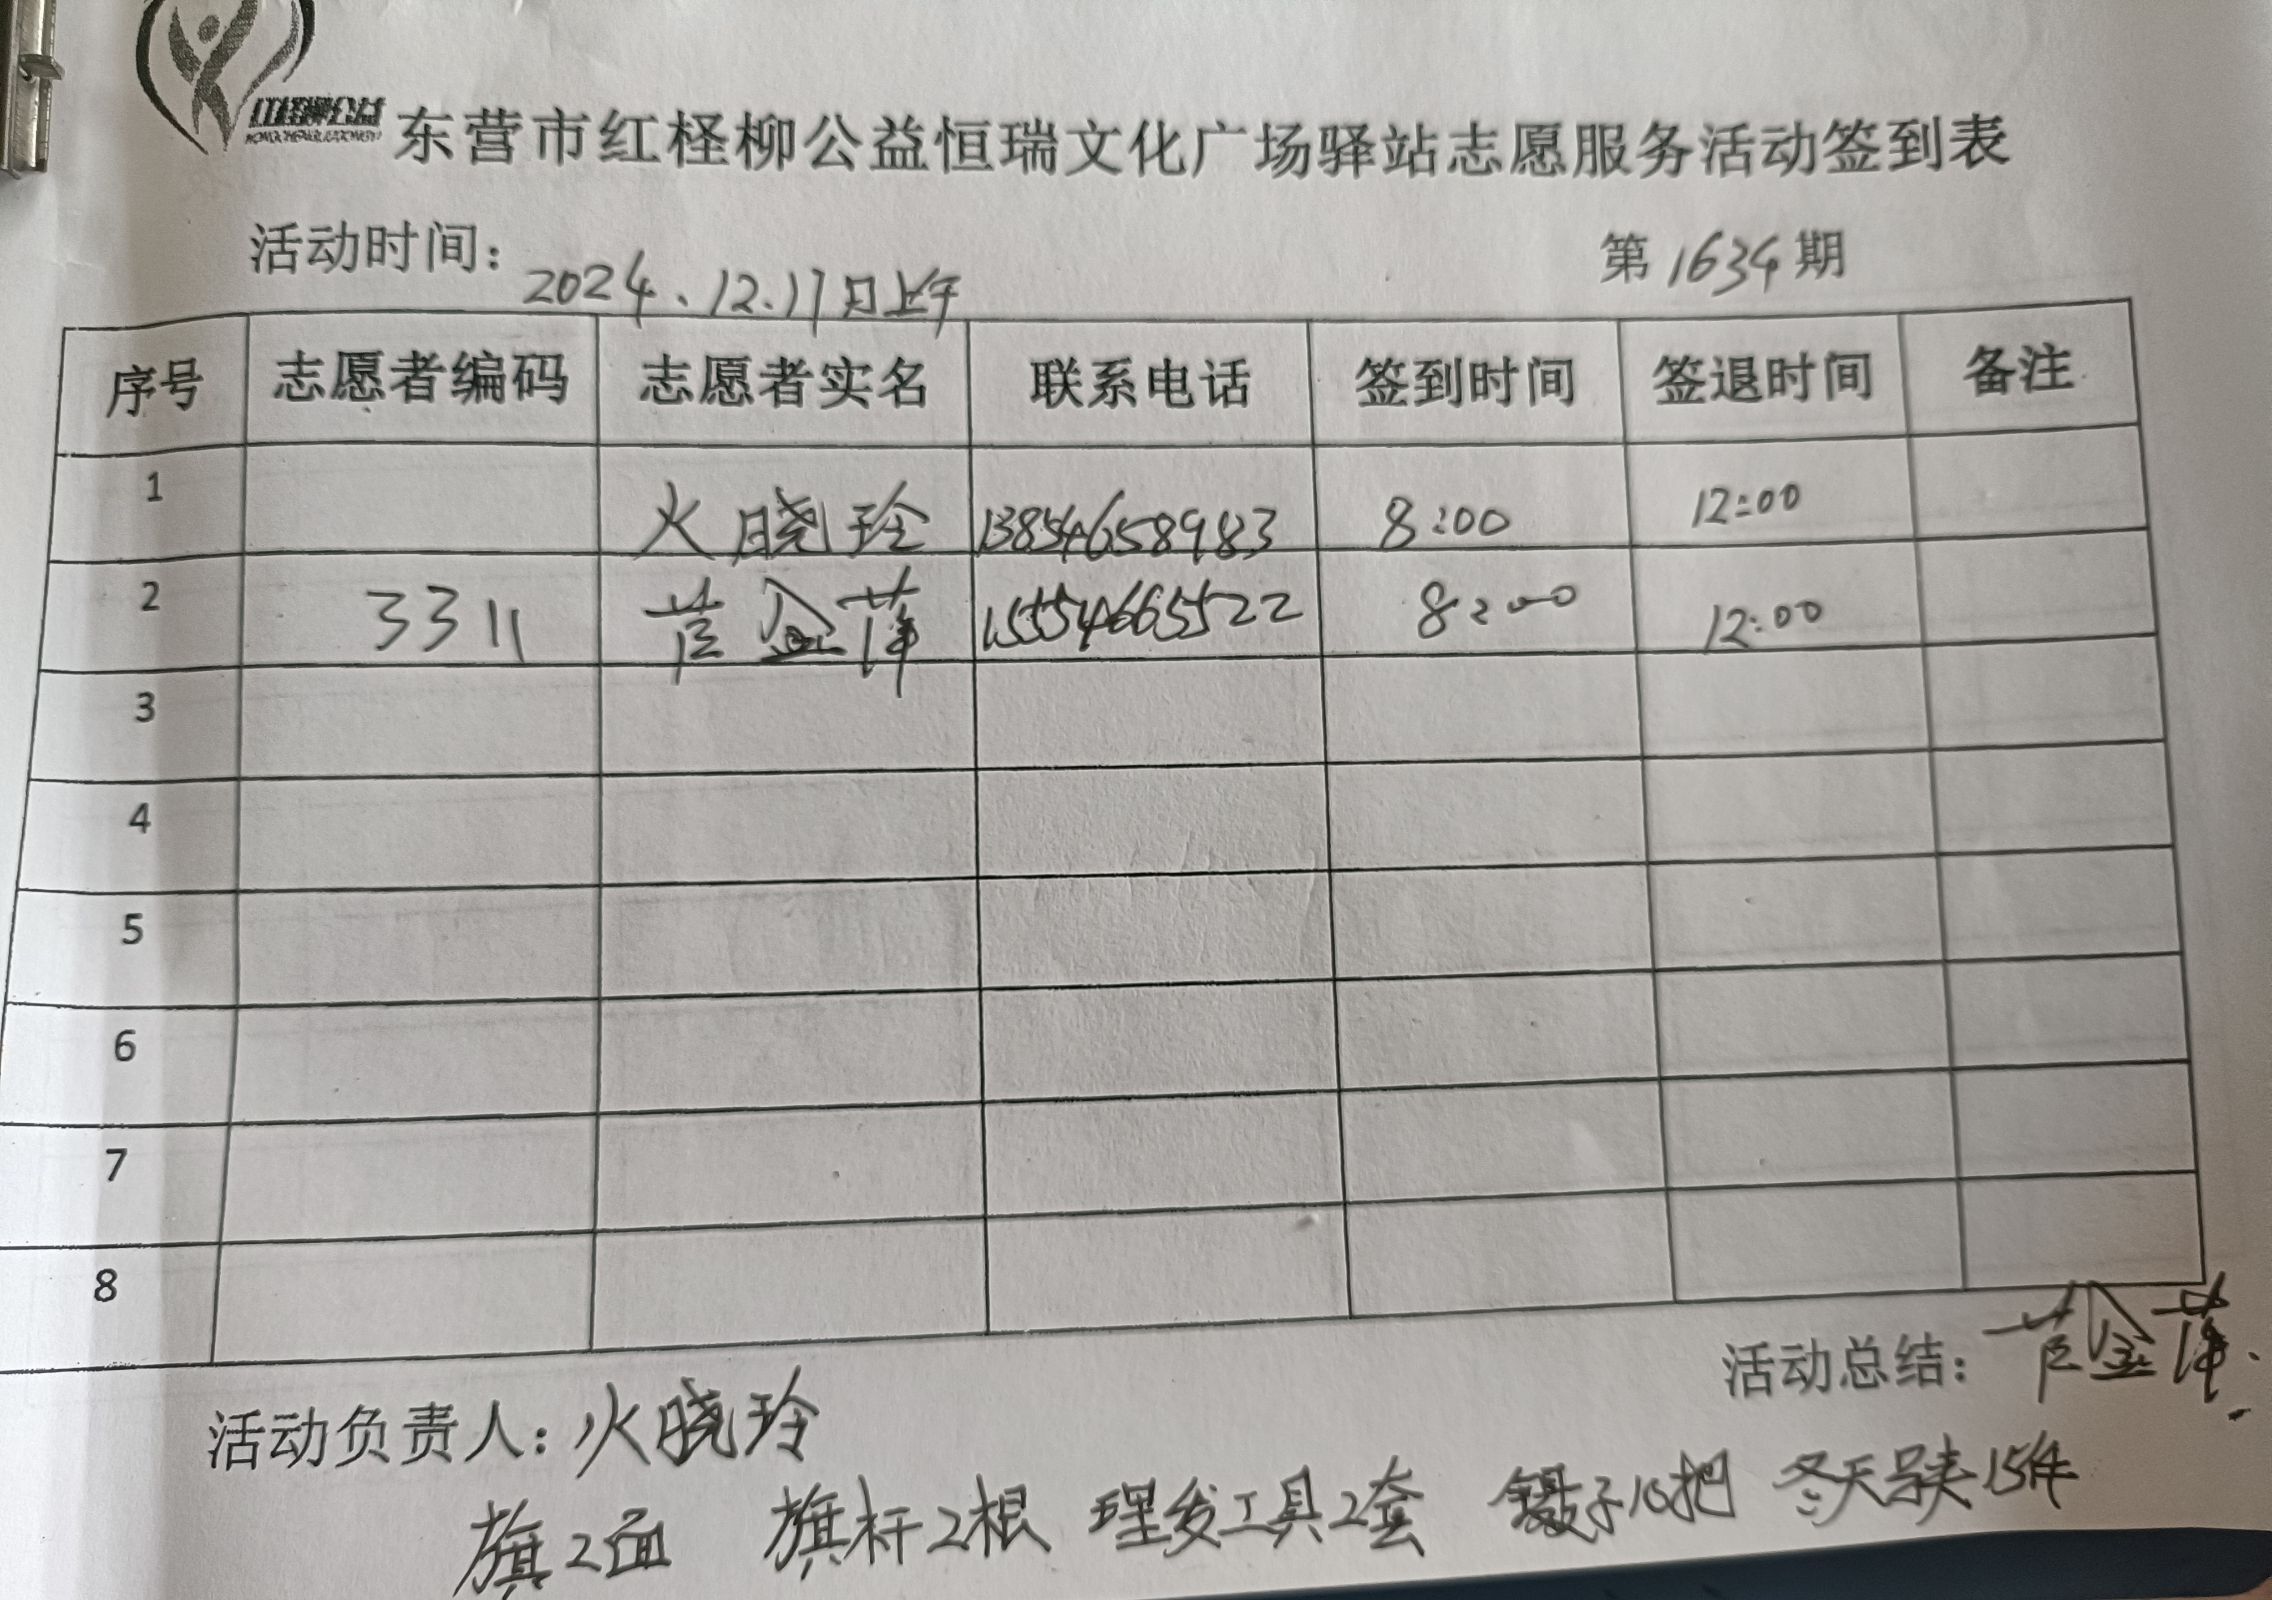 红柽柳公益
东营市红柽柳公益恒瑞文化广场驿站志愿服务活动签到表
活动时间：2024.12.17日上午 第1634期
序号 志愿者编码 志愿者实名 联系电话 签到时间 签退时间 备注
1 火晓玲 13854658983 8:00 12:00
2 3311 苦金萍 15554665522 8:00 12:00
3
4
5
6
7
8
活动总结：金萍.
活动负责人：火晓玲
旗2面 旗杆2根 理发工具2套 镊子10把 冬天马夹15件